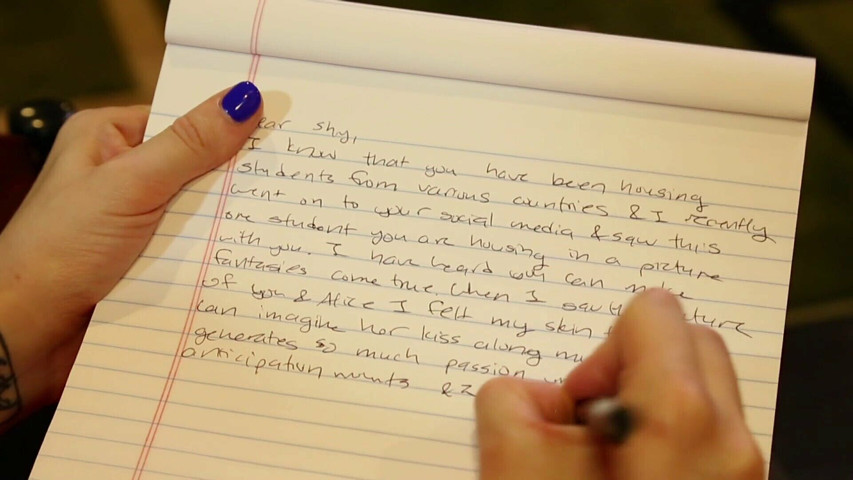 ear shy,
I know that you have been housing
students from various countries & I recently
went on to your social media & saw this
one student you are housing in a picture
with you. I have heard you can make
fantasies come true. When I saw picture
of you & Alice I felt my skin
can imagine her kiss along my
generates so much passion
anticipation mounts &